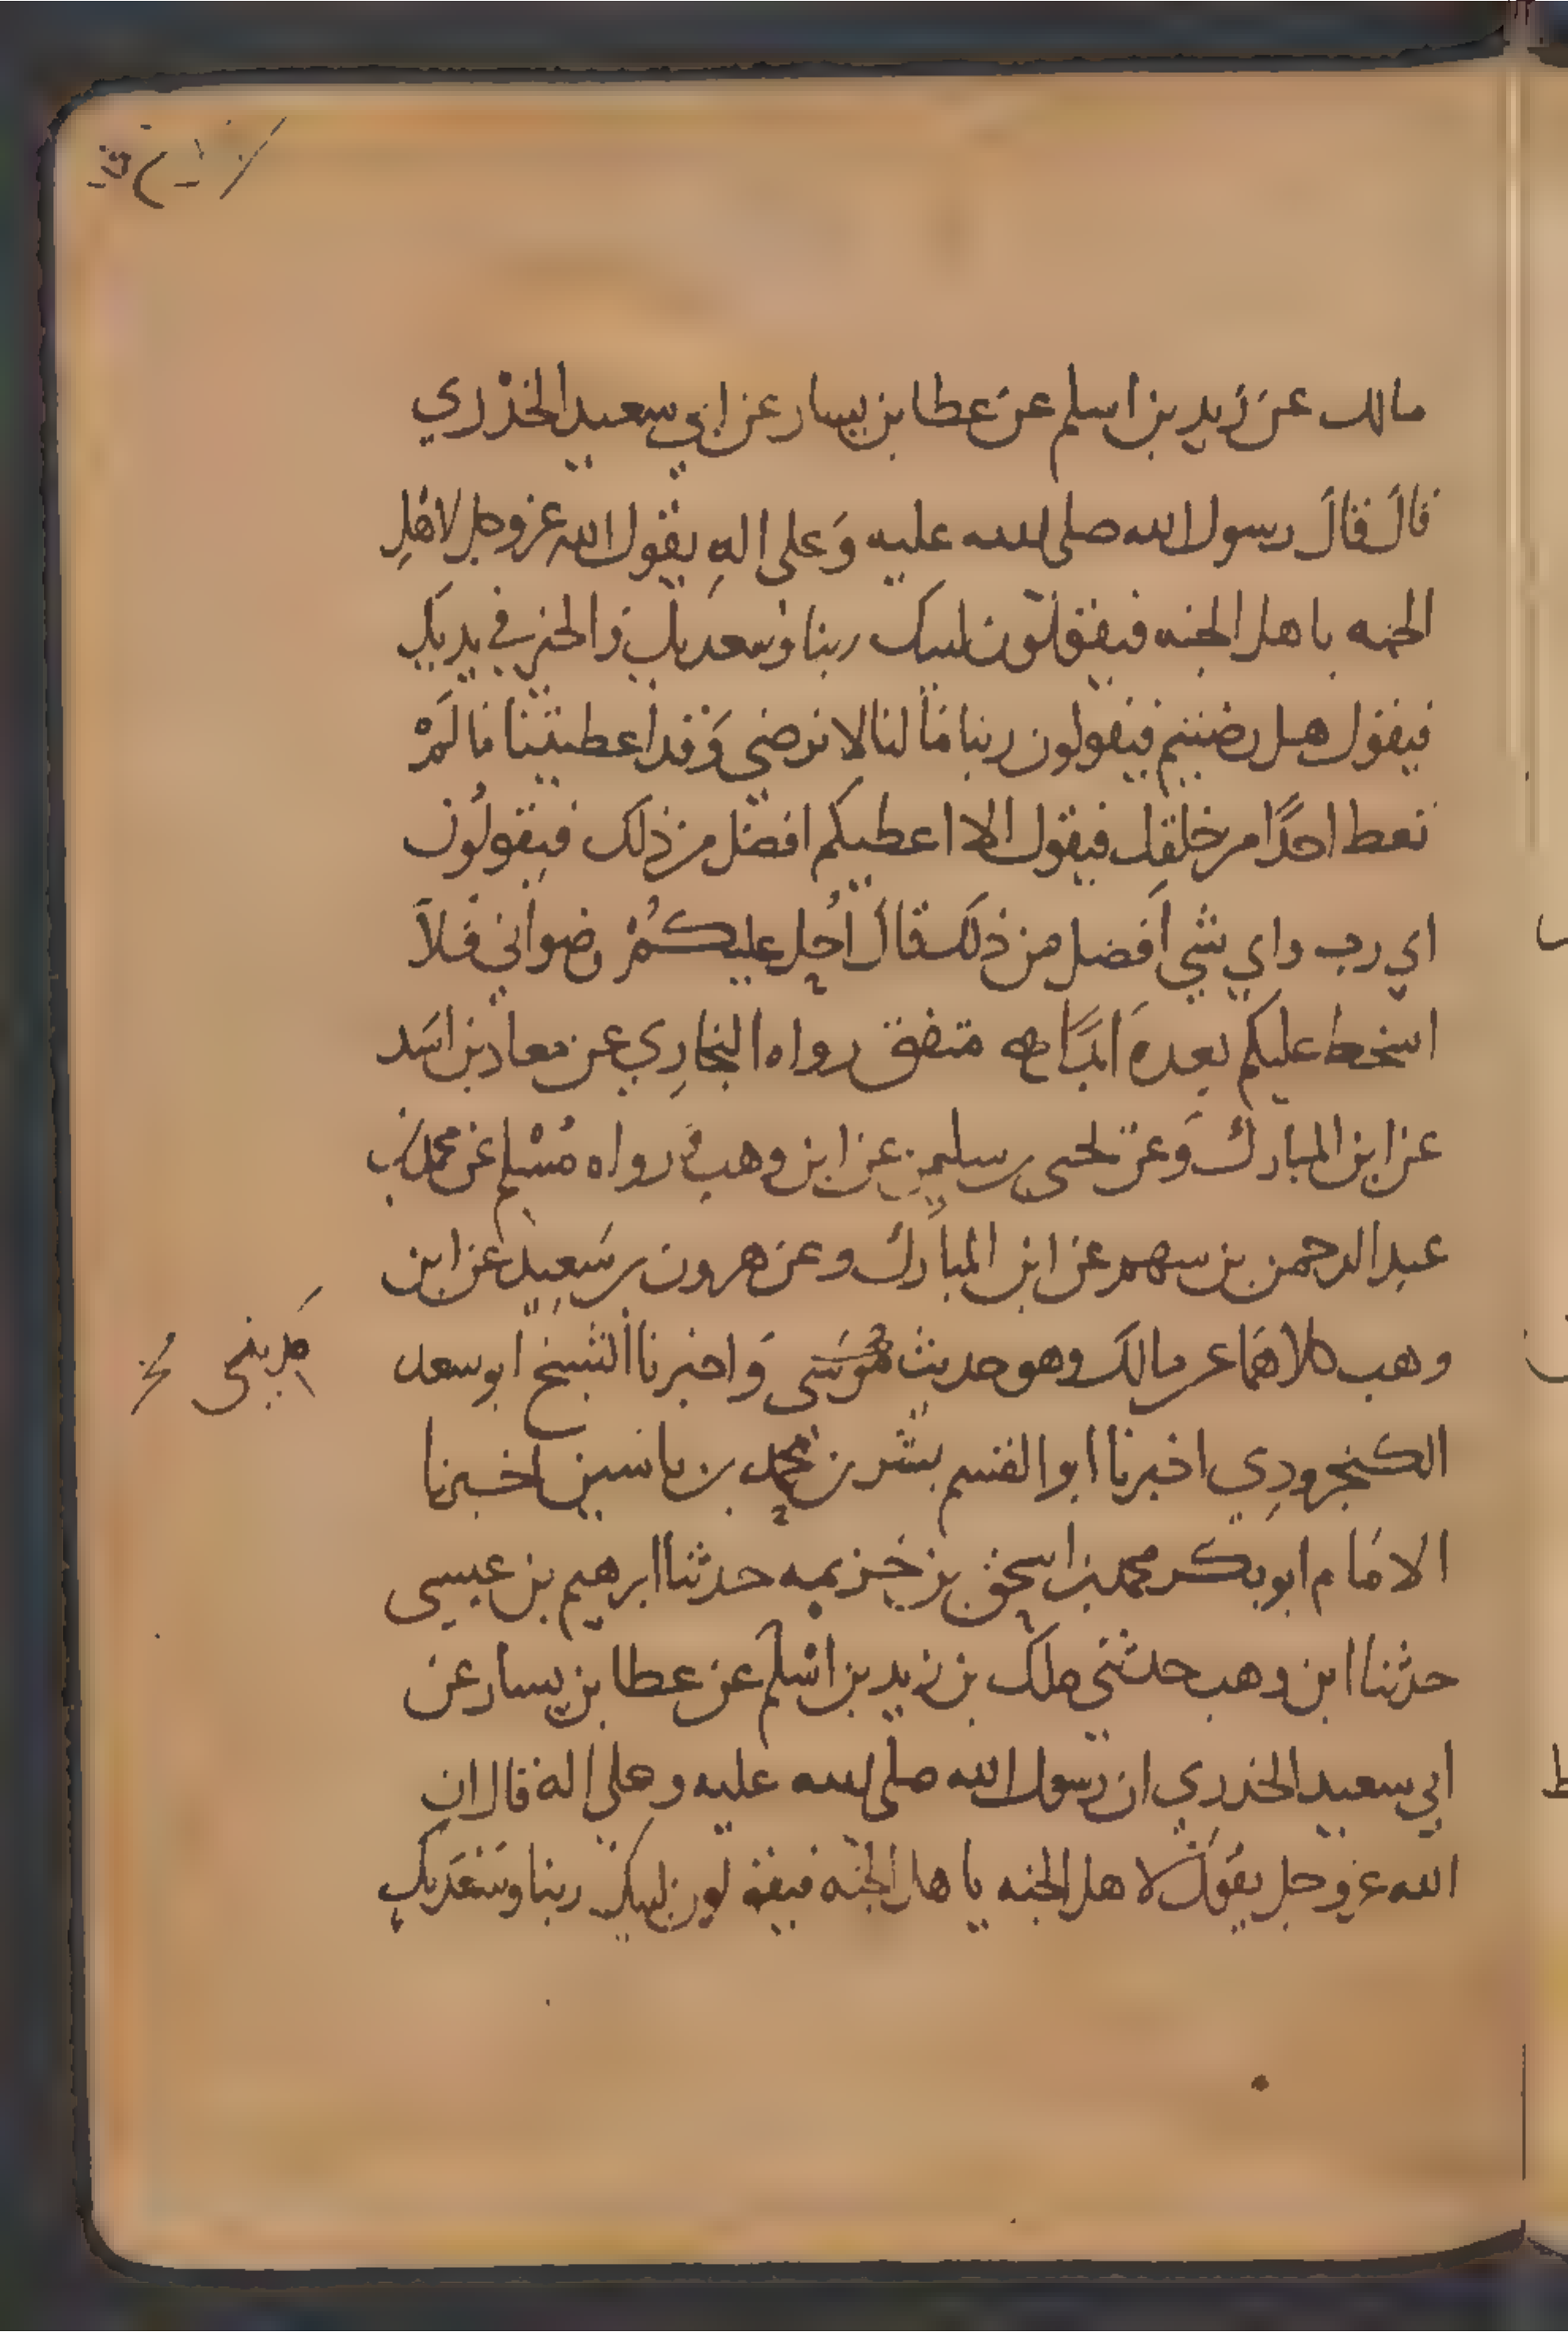 مالك عن زيد بن اسلم عن عطا بن يسار عن ابي سعيد الخدري
قال قال رسول الله صلى الله عليه وعلى اله يقول الله عز وجل لاهل
الجنه يا هل الجنه فيقولون لبيك ربنا وسعديك والخير في يديك
فيقول هل رضيتم فيقولون ربنا ما لنا لا نرضي وقد اعطيتنا ما لم
تعط احدا من خلقك فيقول الا اعطيكم افضل من ذلك فيقولون
اي رب واي شي افضل من ذلك قال احل عليكم رضواني فلا
اسخط عليكم بعده ابدا متفق رواه البخاري عن معاذ بن اسد
عن ابن المبارك وعن يحيى بن سليمن عن ابن وهب رواه مسلم عن محمد بن
عبد الرحمن بن سهم عن ابن المبارك وعن هرون بن سعيد عن ابن
وهب كلاهما عن مالك وهو حديث واخبرنا الشيخ ابو سعد
الكنجرودي اخبرنا ابو القسم بشر بن محمد بن ياسين اخبرنا
الامام ابو بكر محمد بن اسحق بن خزيمه حدثنا ابرهيم بن عيسى
حدثنا ابن وهب حدثني ملك بن زيد بن اسلم عن عطا بن يسار عن
ابي سعيد الخدري ان رسول الله صلى الله عليه وعلى اله قال ان
الله عز وجل يقول لاهل الجنه يا هل الجنه فيقولون لبيك ربنا وسعديك